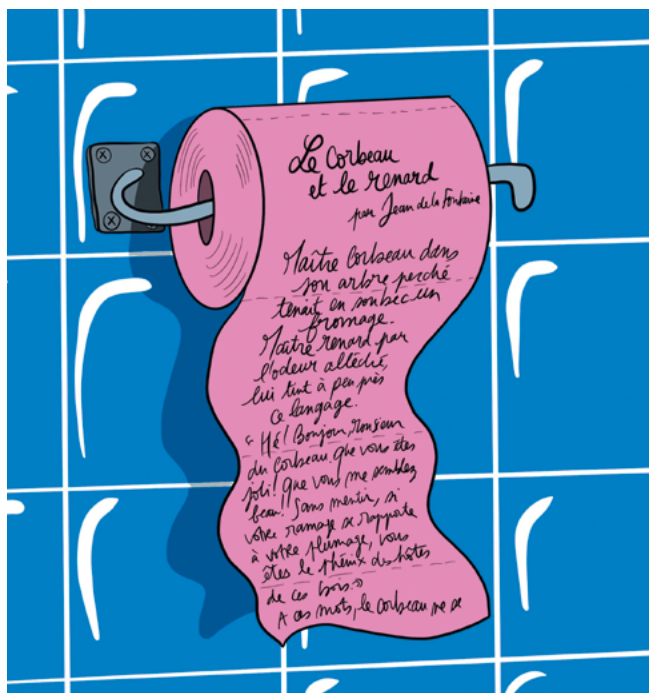 Le Corbeau
et le renard
par Jean de la Fontaine
Maître Corbeau dans
son arbre perché
tenait en son bec un
fromage.
Maître renard par
l'odeur alléché,
lui tint à peu près
ce langage.
" Hé! Bonjour, Monsieur
du Corbeau que vous êtes
joli! Que vous me semblez
beau!! Sans mentir, si
votre ramage se rapporte
à votre plumage, vous
êtes le phénix des hôtes
de ces bois."
A ces mots, le corbeau ne se